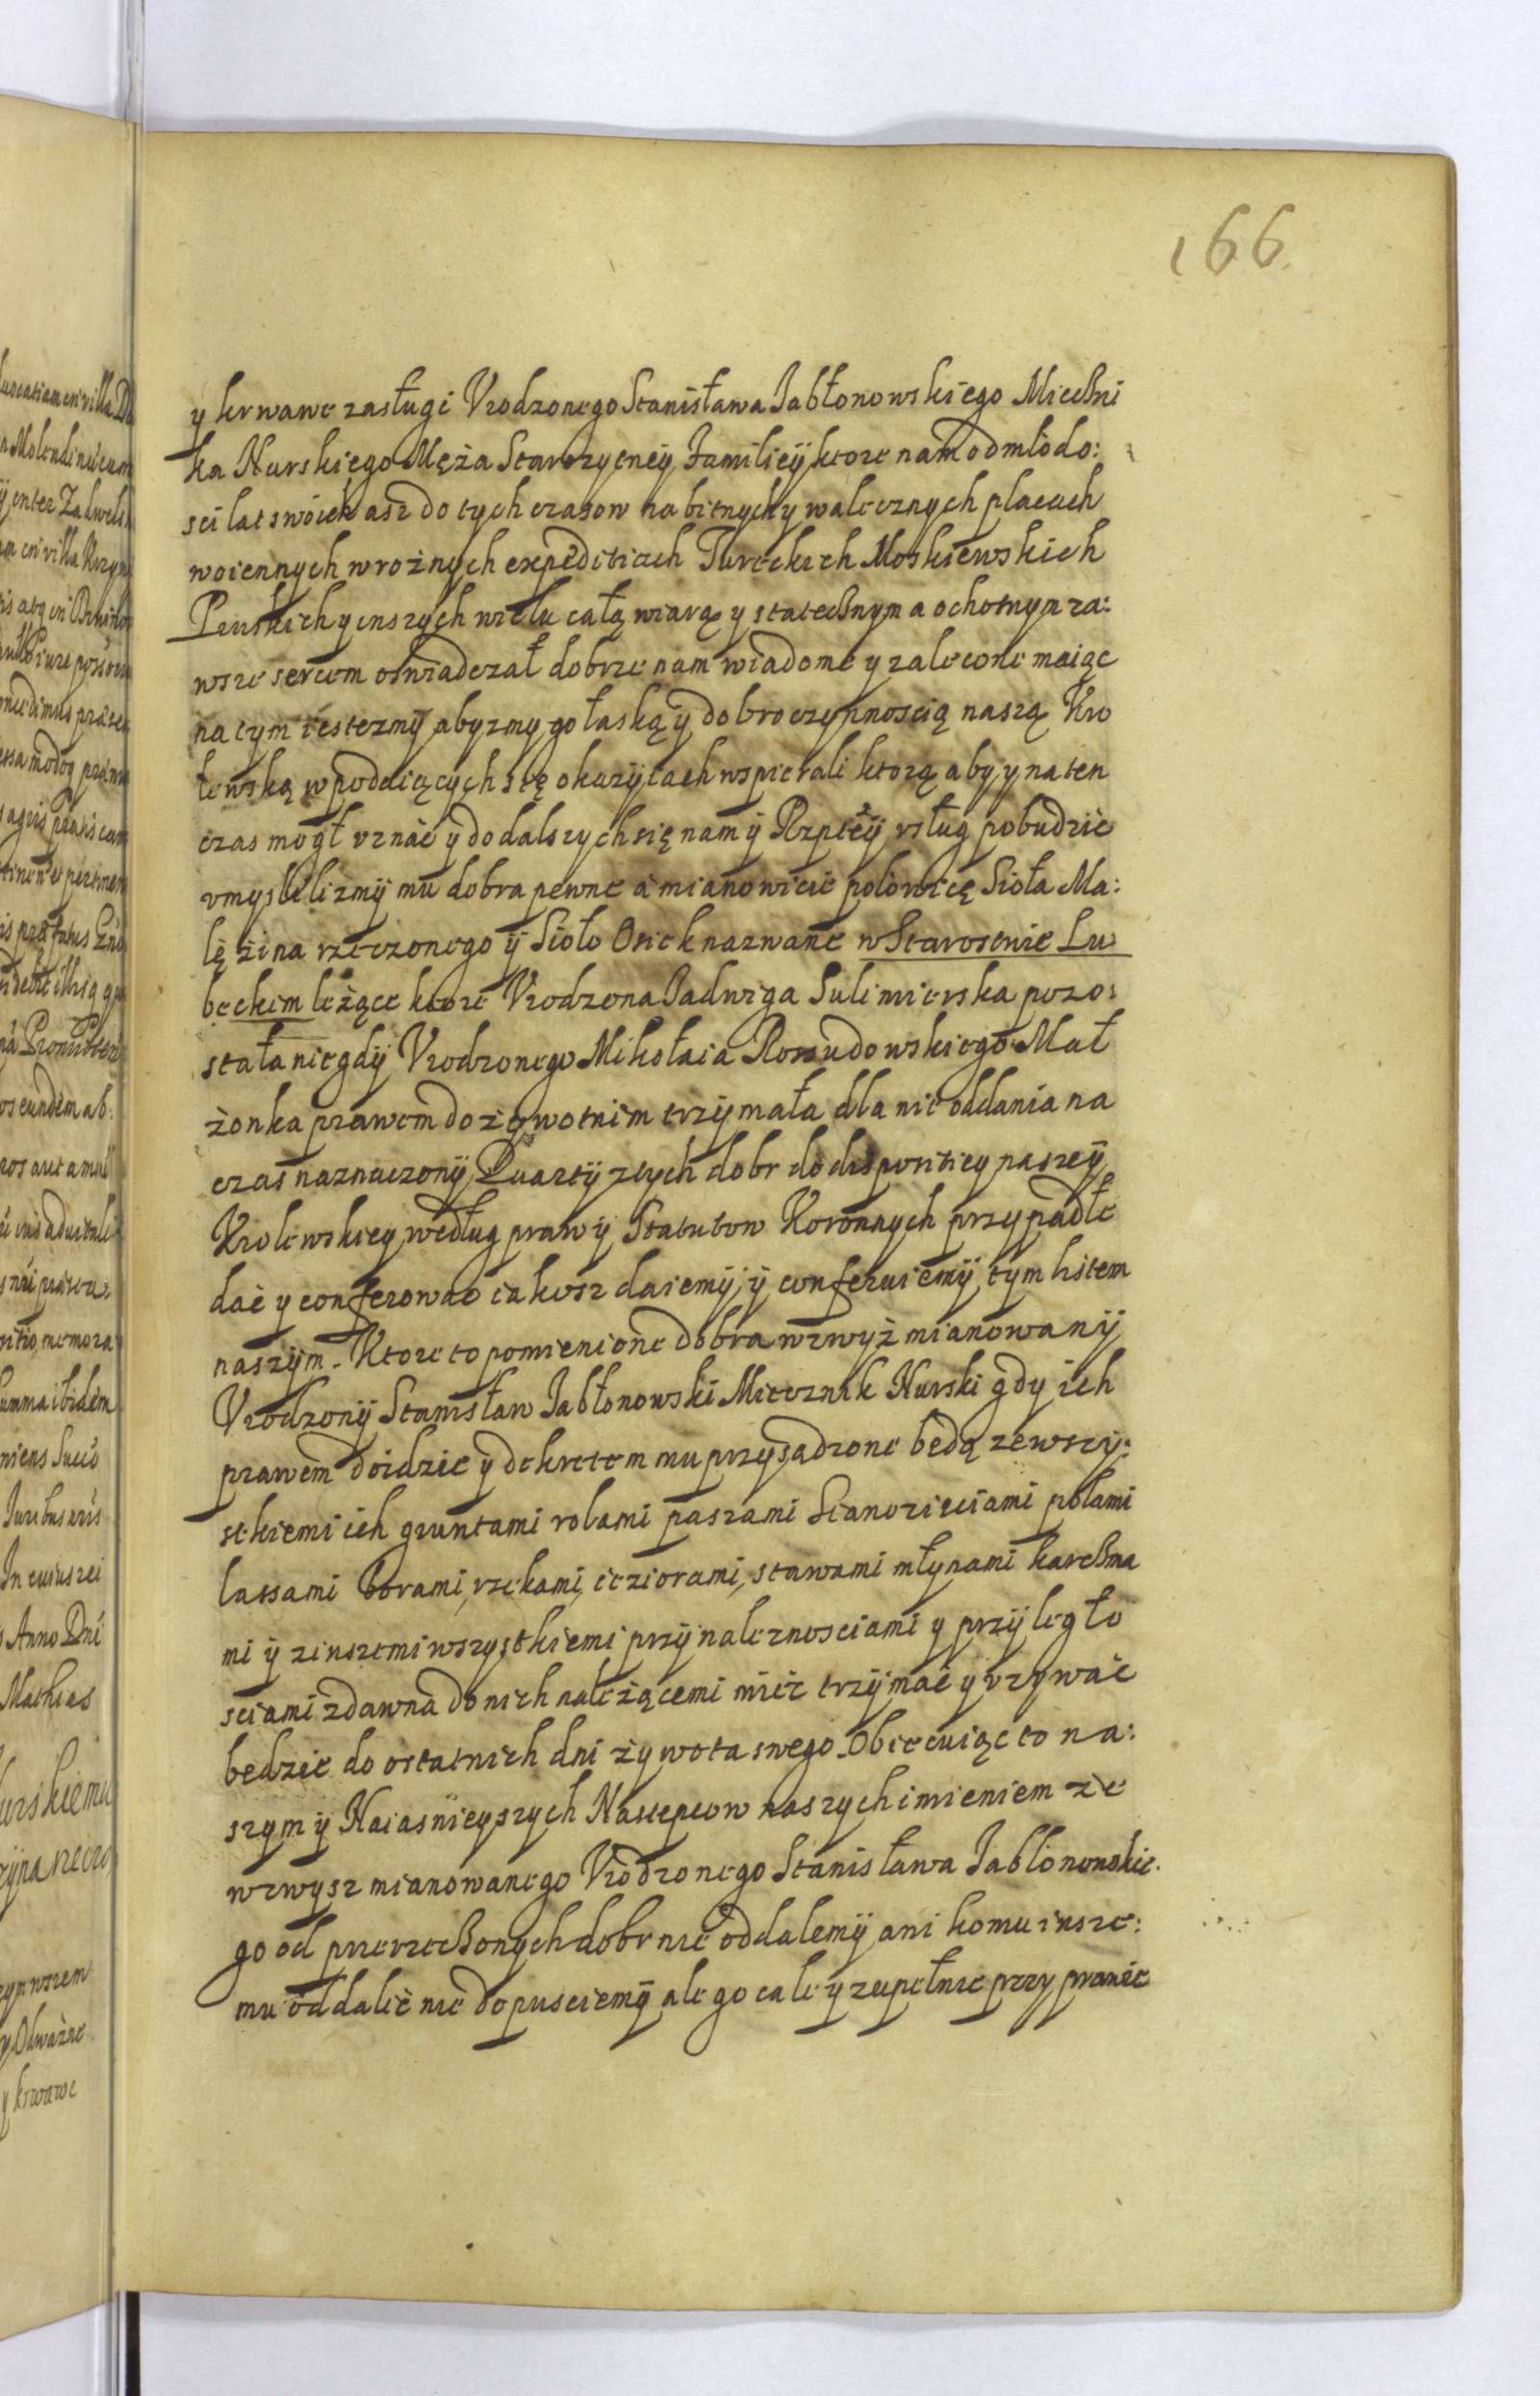 166
y krwawe zasługi Vrodzonego Stanisława Jabłonowskiego Mieczni
ka Nurskiego Męża Starozytnéÿ Familieÿ ktore nam od mlodo:
sci lat swoich asz do tych czasow na bitnych y walecznych placach
woiennych w rożnych expeditiach Tureckich Moskiewskich
Pruskich y inszych wielu całą wiarą y statecznym a ochotnym za:
wsze sercem oświadczał dobrze nam wiadome y zalecone maiąc
na tym iestezmÿ abyzmy go łaską ÿ dobroczynnoscią naszą Kro
lewską w podaiących się okazÿiach wspierali ktorą aby y na ten
czas mogł vznać y do dalszych się nam ÿ Rzptéÿ vsług pobudzić
vmyslelizmÿ mu dobra pewne a mianowicie połowicę Sioła Ma:
lężina rzeczonego ÿ Sioło Osiek nazwane w Starostwie Lu
beckim leżące ktore Vrodzona Jadwiga Sulimierska pozo:
stała niegdÿ Vrodzonego Mikołaia Rossudowskiego Mał
żonka prawem dożywotnim trzÿmała dla nie oddania na
czas naznaczonÿ Quartÿ z tych dobr do disposiției naszeÿ
Krolewskiey według praw ÿ Statutow Koronnych przypadłe
dać y conferować iakosz daiemÿ ÿ conferuiemÿ tym listem
naszÿm. Ktore to pomienione dobra wzwyż mianowanÿ
Vrodzonÿ Stanisław Jabłonowski Miecznik Nurski gdy ich
prawem doidzie ÿ dekretem mu przysądzone będą ze wszÿ:
stkiemi ich gruntami rolami paszami Sianozieciami polami
lassami borami, rzekami, ieziorami, stawami młynami karczma
mi ÿ z inszemi wszystkiemi przÿnaleznosciami y przÿległo
sciami zdawna do nich należącemi mieć trzÿmać y vzywać
bedzie do ostatnich dni żywota swego. Obiecuiąc to na:
szym ÿ Naiaśnieyszych Nastepcow naszych imieniem że
wzwysz mianowanego Vrodzonego Stanisława Jabłonowskie.
go od przerzeczonych dobr nie oddalemÿ ani komu insze:
mu oddalić nie dopusciemÿ ale go cale y zupełnie przy prawie